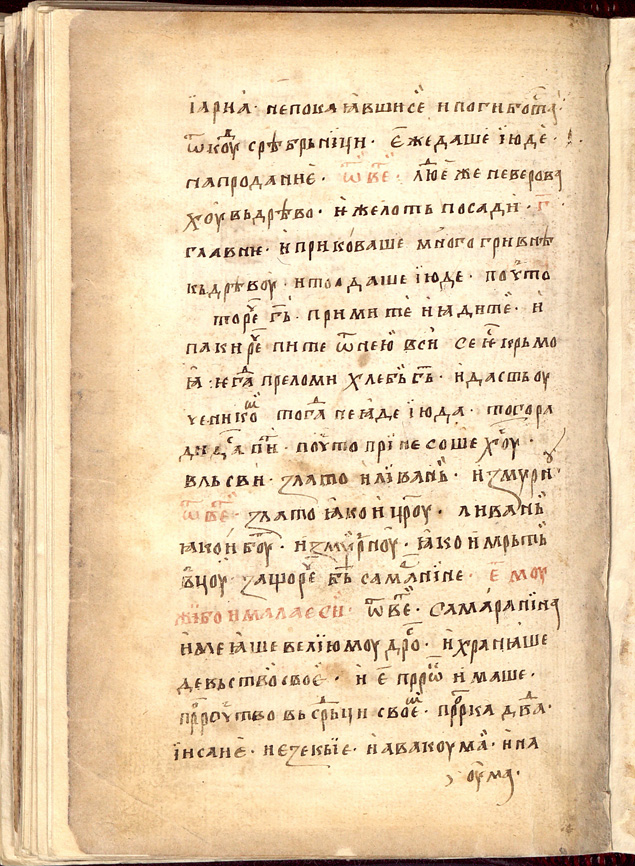 їарна · непокаꙗвшисе и погиботꙗ
ѿкоⷣу срѣбрьници · Еже даше їюде ·
на продание · ѿвеⷮ · люⷣе же неверова
хоу вьдрѣво · и желоть посади · г҃ ·
главни · и приковаше много гривнѣ
кьдрѣвоу · и тоа даше їюде · поⷱто
тореⷱ гь҃ · приимите и ꙗдите · и
паки реⷱ пите ѿ нею вси се ѥⷭ крьмо
ꙗ · ѥгⷣа преломи хлебь гь҃ · и дасть оу
ченикоⷨ тогⷣа не ꙗде їюда · того ра
ди цⷭа пⷭн · поⷱто принесоше хⷭоу ·
вльсви · злато и ливань · и змурн
ѿвеⷮ · злато ꙗко и цр҃оу · ливань
ꙗко и бо҃у · и змурноу · ꙗко и мрьть
вцоу · защореⷱ гь҃ самарⷶнине · Е моу
жи бо ималаеси · ѿвеⷮ · самаранина
имеꙗше велїю моудроⷭ · и храниꙗше
девьство своѥ · и Е прⷪрⷪ имаше ·
прⷪрⷪчьтво вь срⷣьци своеⷨ · прⷪрⷪка двⷣа ·
їисаие · иезекыїе · и авакоума · и на
оума ·